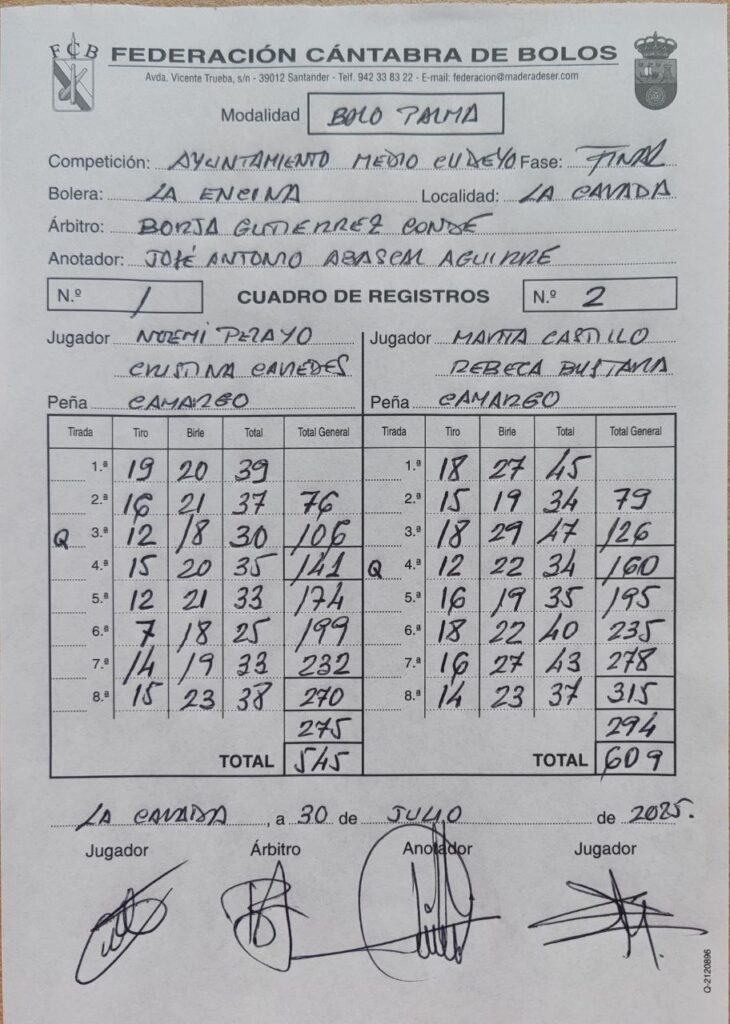 FCB
FEDERACIÓN CÁNTABRA DE BOLOS
Avda. Vicente Trueba, s/n - 39012 Santander - Telf. 942 33 83 22 - E-mail: federacion@maderadeser.com
Modalidad BOLO PALMA
Competición: AYUNTAMIENTO MEDIO CUDEYO Fase: FINAL
Bolera: LA ENCINA Localidad: LA CAVADA
Árbitro: BORJA GUTIERREZ CONDE
Anotador: JOSÉ ANTONIO ABASCAL AGUIRRE
N.º 1 CUADRO DE REGISTROS N.º 2
Jugador NOEMI PELAYO Jugador MARTA CASTILLO
CRISTINA CAVIEDES REBECA BUSTARA
Peña CAMARGO Peña CAMARGO
Tirada Tiro Birle Total Total General Tirada Tiro Birle Total Total General
1.ª 19 20 39 1.ª 18 27 45
2.ª 16 21 37 76 2.ª 15 19 34 79
Q 3.ª 12 18 30 106 3.ª 18 29 47 126
4.ª 15 20 35 141 Q 4.ª 12 22 34 160
5.ª 12 21 33 174 5.ª 16 19 35 195
6.ª 7 18 25 199 6.ª 18 22 40 235
7.ª 14 19 33 232 7.ª 16 27 43 278
8.ª 15 23 38 270 8.ª 14 23 37 315
275 294
TOTAL 545 TOTAL 609
LA CAVADA, a 30 de JULIO de 2025.
Jugador Árbitro Anotador Jugador
Q-2120896